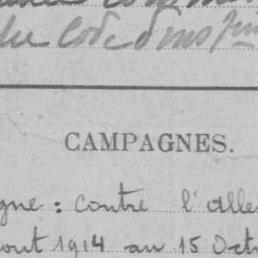 du Code d'Ins
CAMPAGNES.
gne : contre l'alle
out 1914 au 15 Octo